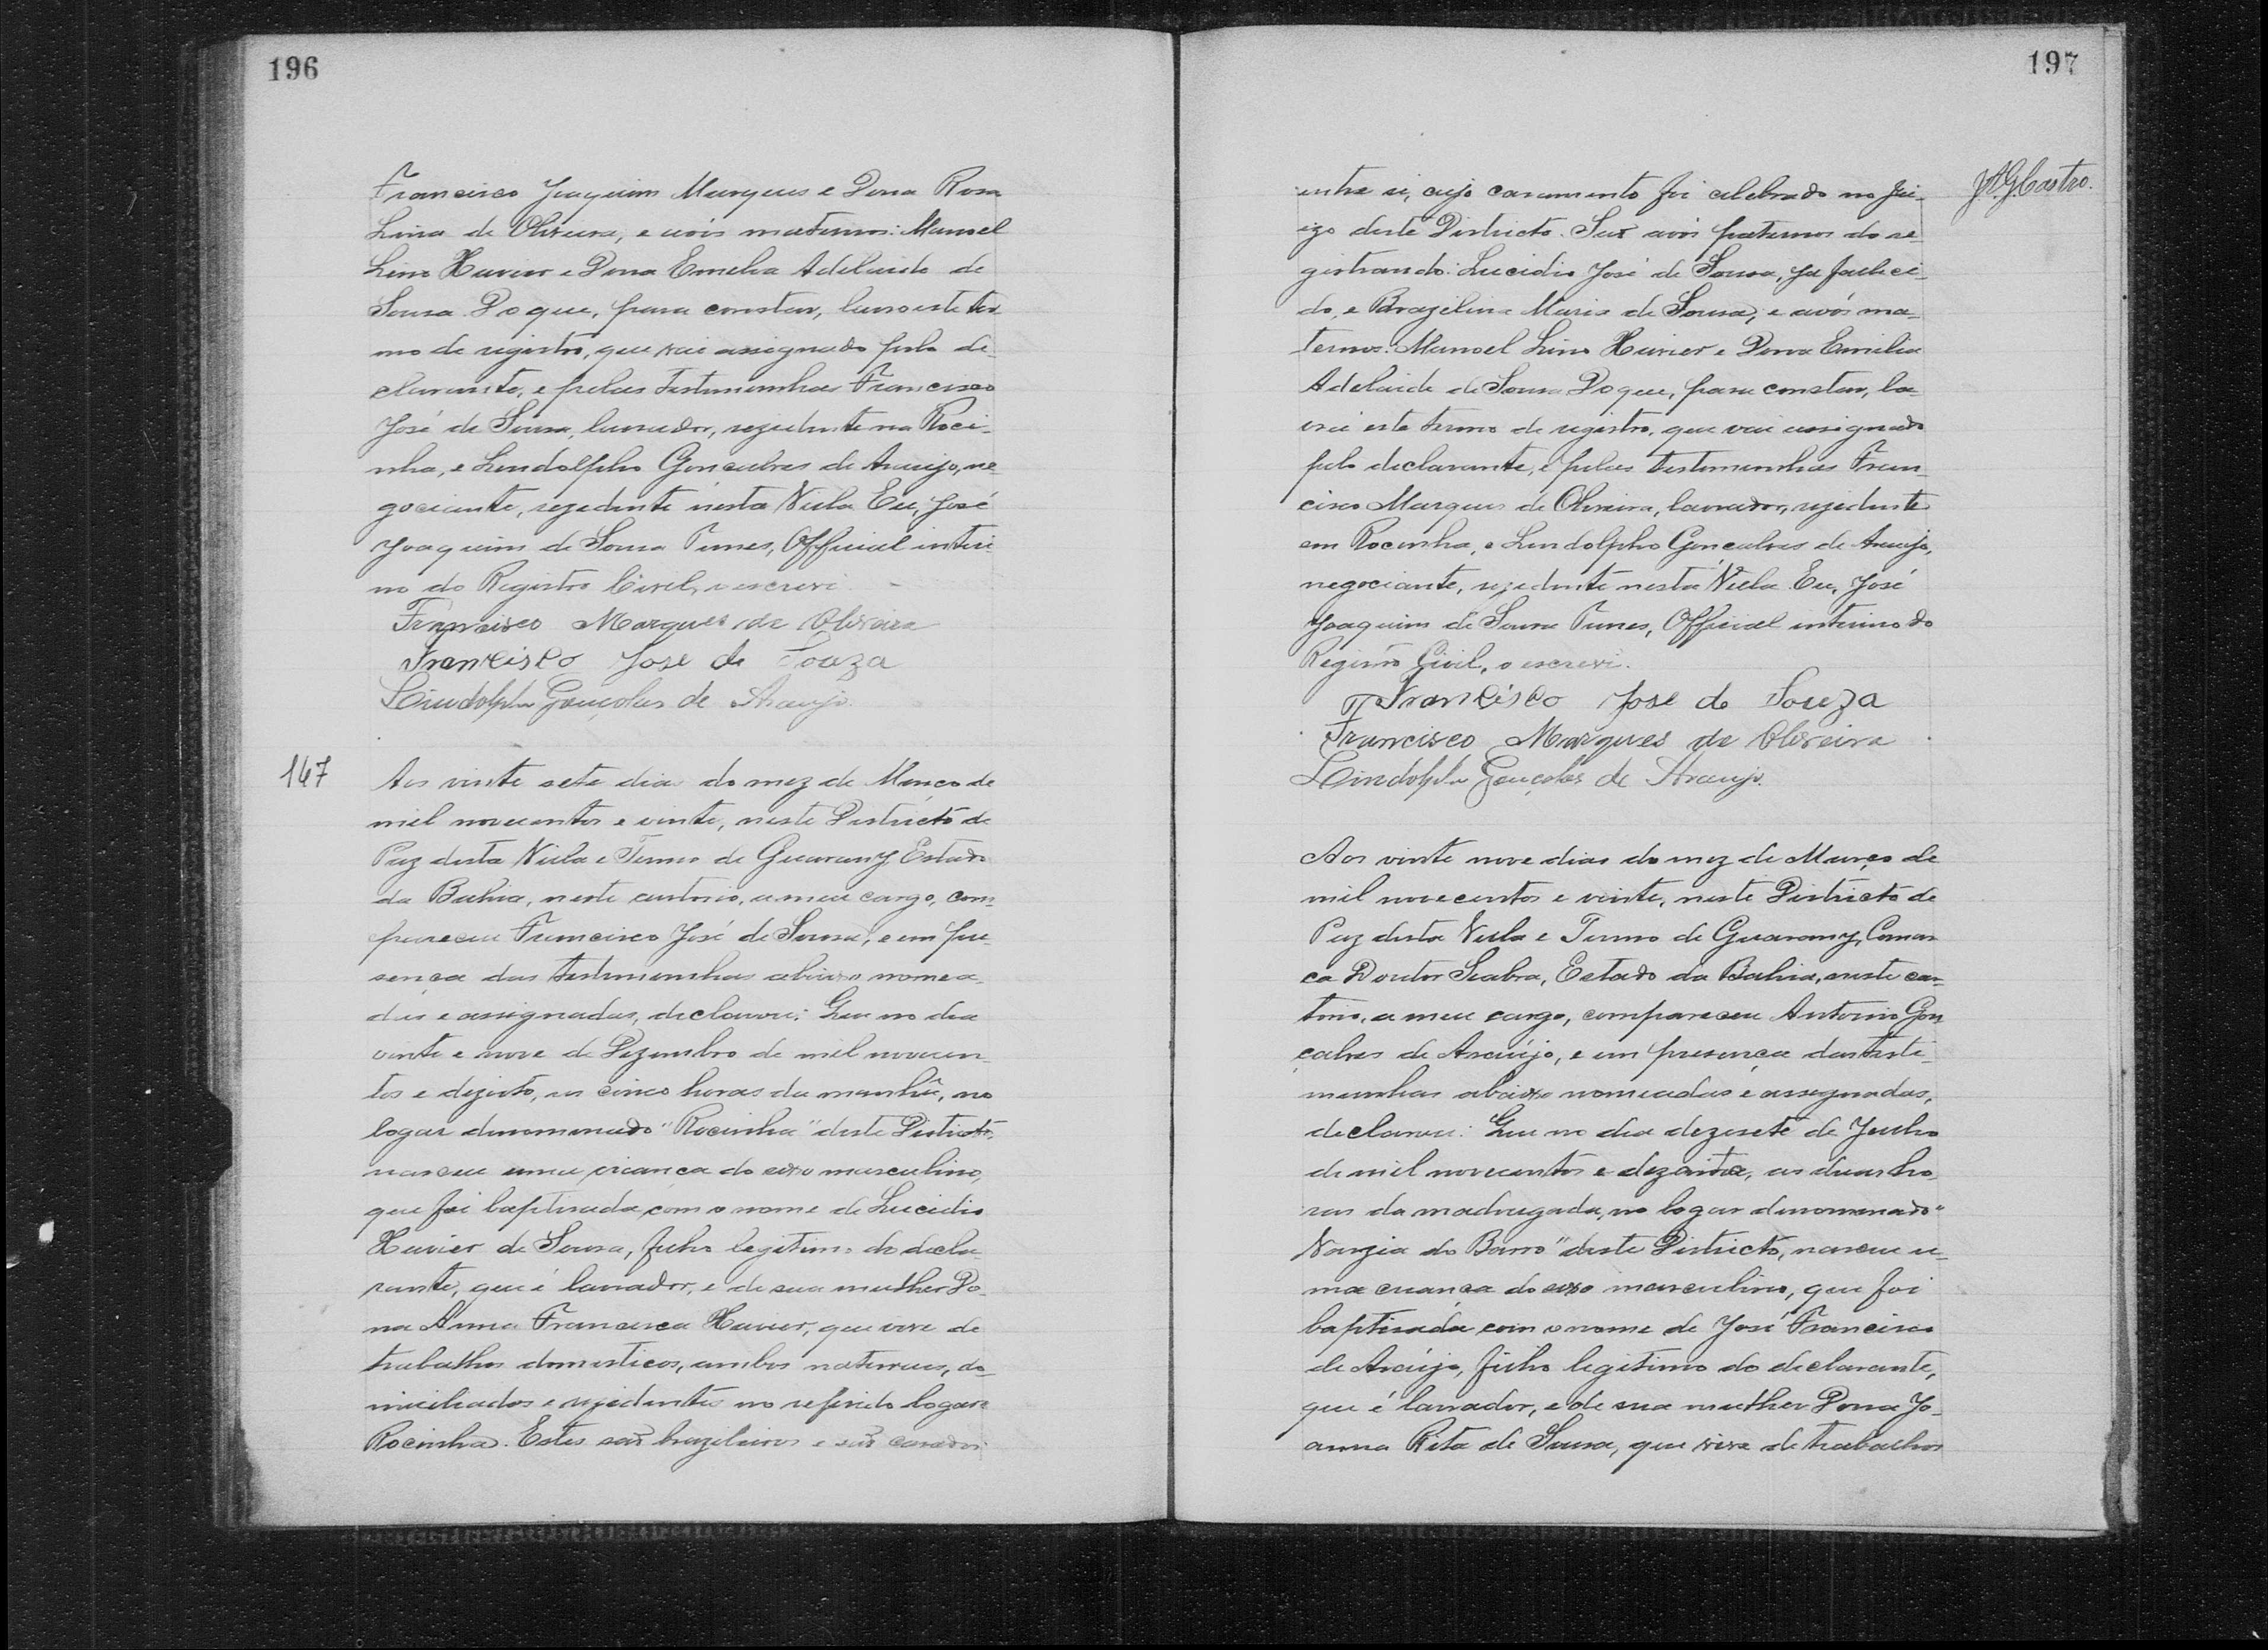 196
Francisco Joaquim Marques e Dona Rosa
Lina de Oliveira, e avós maternos: Manoel
Lino Xavier e Dona Emelia Adelaide de
Sousa. Do que, para constar, lavro este ter-
mo de registro, que vai assignado pelo de-
clarante, e pelas testemunhas Francisco
José de Sousa, lavrador, rezidente na Roci-
nha, e Lindolpho Goncalves de Araujo, ne-
gociante, rezidente nesta Villa. Eu, José
Joaquim de Sousa Tunes, Official interi-
no do Registro Civil, o escrevi.
Francisco Marques de Oliveira
Francisco Jose de Souza
Lindolpho Gonçolves de Araujo.
147
Aos vinte sete dias do mez de Março de
mil novecentos e vinte, neste Districto de
Paz desta Villa e Termo de Guarany Estado
da Bahia, neste cartorio, a meu cargo, com-
pareceu Francisco José de Sousa, e em pre-
sença das testemunhas abaixo nomea-
das e assignadas, declarou: Que no dia
vinte e nove de Dezembro de mil novecen-
tos e dezoito, as cinco horas da manhã, no
logar denomenado "Rocinha" deste Districto,
nasceu uma criança do sexo masculino,
que foi baptisada com o nome de Lucidio
Xavier de Sousa, filho legitimo do decla-
rante, que é lavrador, e de sua mulher Do-
na Anna Francisca Xavier, que vive de
trabalhos domesticos, ambos naturaes, do-
miciliados e rezidentes no referido logar
Rocinha. Estes são brazileiros e são casados
197
J.A.G.Castro.
entre si, cujo casamento foi celebrado no Jui-
izo deste Districto. São avós paternos do re-
gistrando: Lucidio José de Sousa, já falleci-
do, e Brazelina Maria de Sousa, e avós ma-
ternos: Manoel Lino Xavier e Dona Emilia
Adelaide de Sousa. Do que, para constar, la-
vrei este termo de registro, que vai assignado
pelo declarante, e pelas testemunhas Fran-
cisco Marques de Oliveira, lavrador, rezidente
em Rocinha, e Lindolpho Goncalves de Araujo,
negociante, rezidente nesta Villa. Eu, José
Joaquim de Sousa Tunes, Official interino do
Registro Civil, o escrevi.
Francisco Jose de Souza
Francisco Marques de Oliveira
Lindolpho Gonçolves de Araujo.
Aos vinte nove dias do mez de Março de
mil novecentos e vinte, neste Districto de
Paz desta Villa e Termo de Guarany, Comar-
ca Doutor Seabra, Estado da Bahia, neste car-
torio, a meu cargo, compareceu Antonio Gon-
çalves de Araújo, e em presença das teste-
munhas abaixo nomeadas e assignadas,
declarou: Que no dia dezesete de Junho
de mil novecentos e dezoito, as duas ho-
ras da madrugada, no logar denomenado "
Varzia do Barro" deste Districto, nasceu u-
ma criança do sexo masculino, que foi
baptisada com o nome de José Francisco
de Araújo, filho legitimo do declarante,
que é lavrador, e de sua mulher Dona Jo-
anna Rita de Sousa, que vive de trabalhos